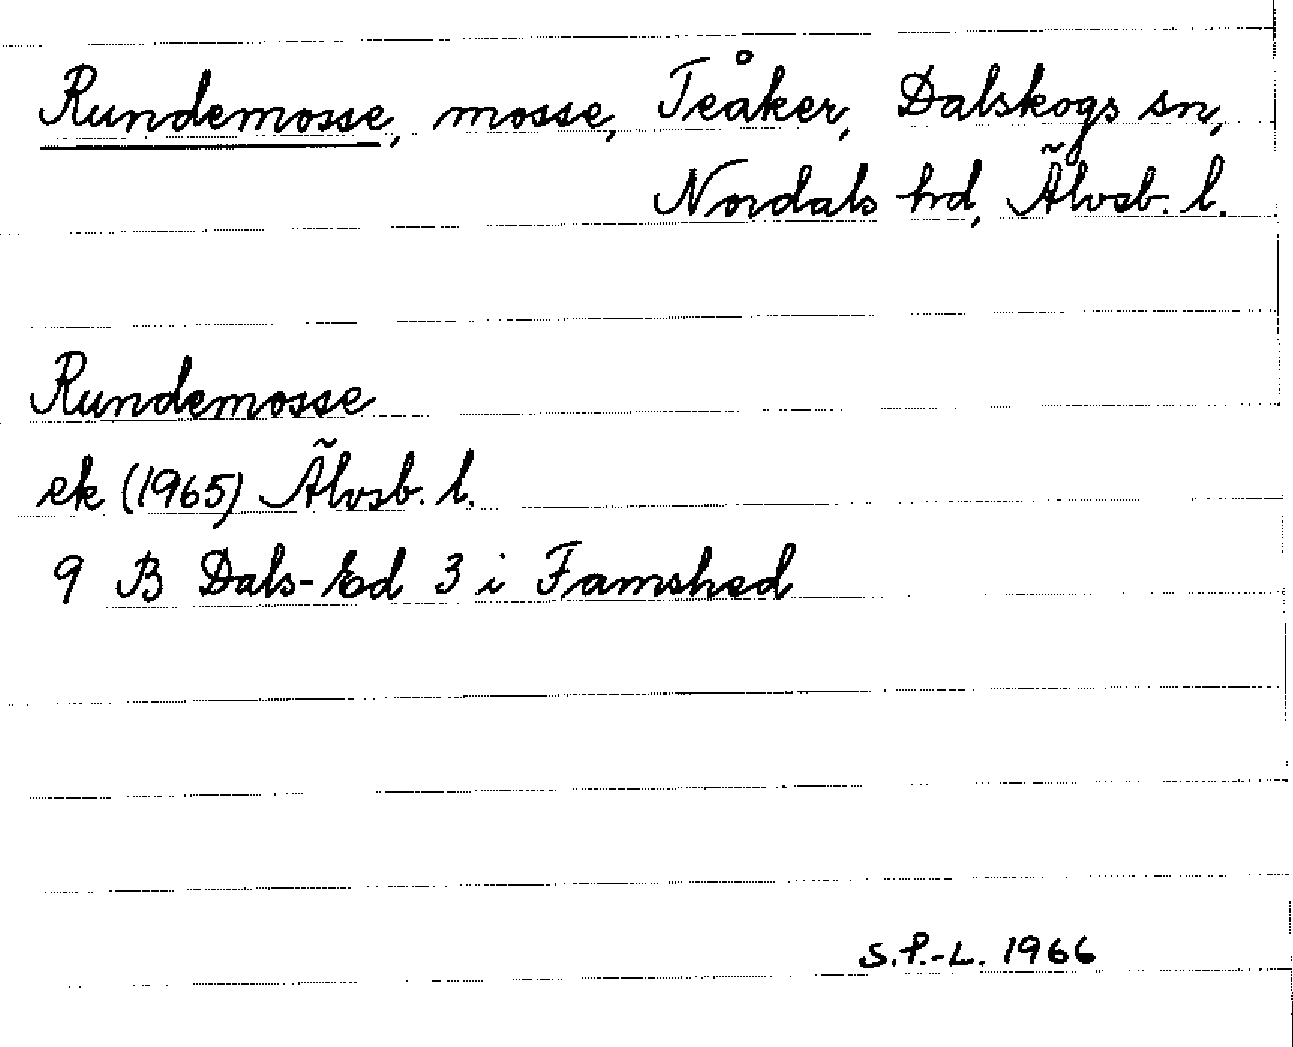 Rundemosse, mosse, Teåker, Dalskogs sn,
Nordals hd, Älvsb. l.
Rundemosse
ek (1965) Älvsb. l.
9 B Dals-Ed 3 i Famshed
S.P.-L. 1966